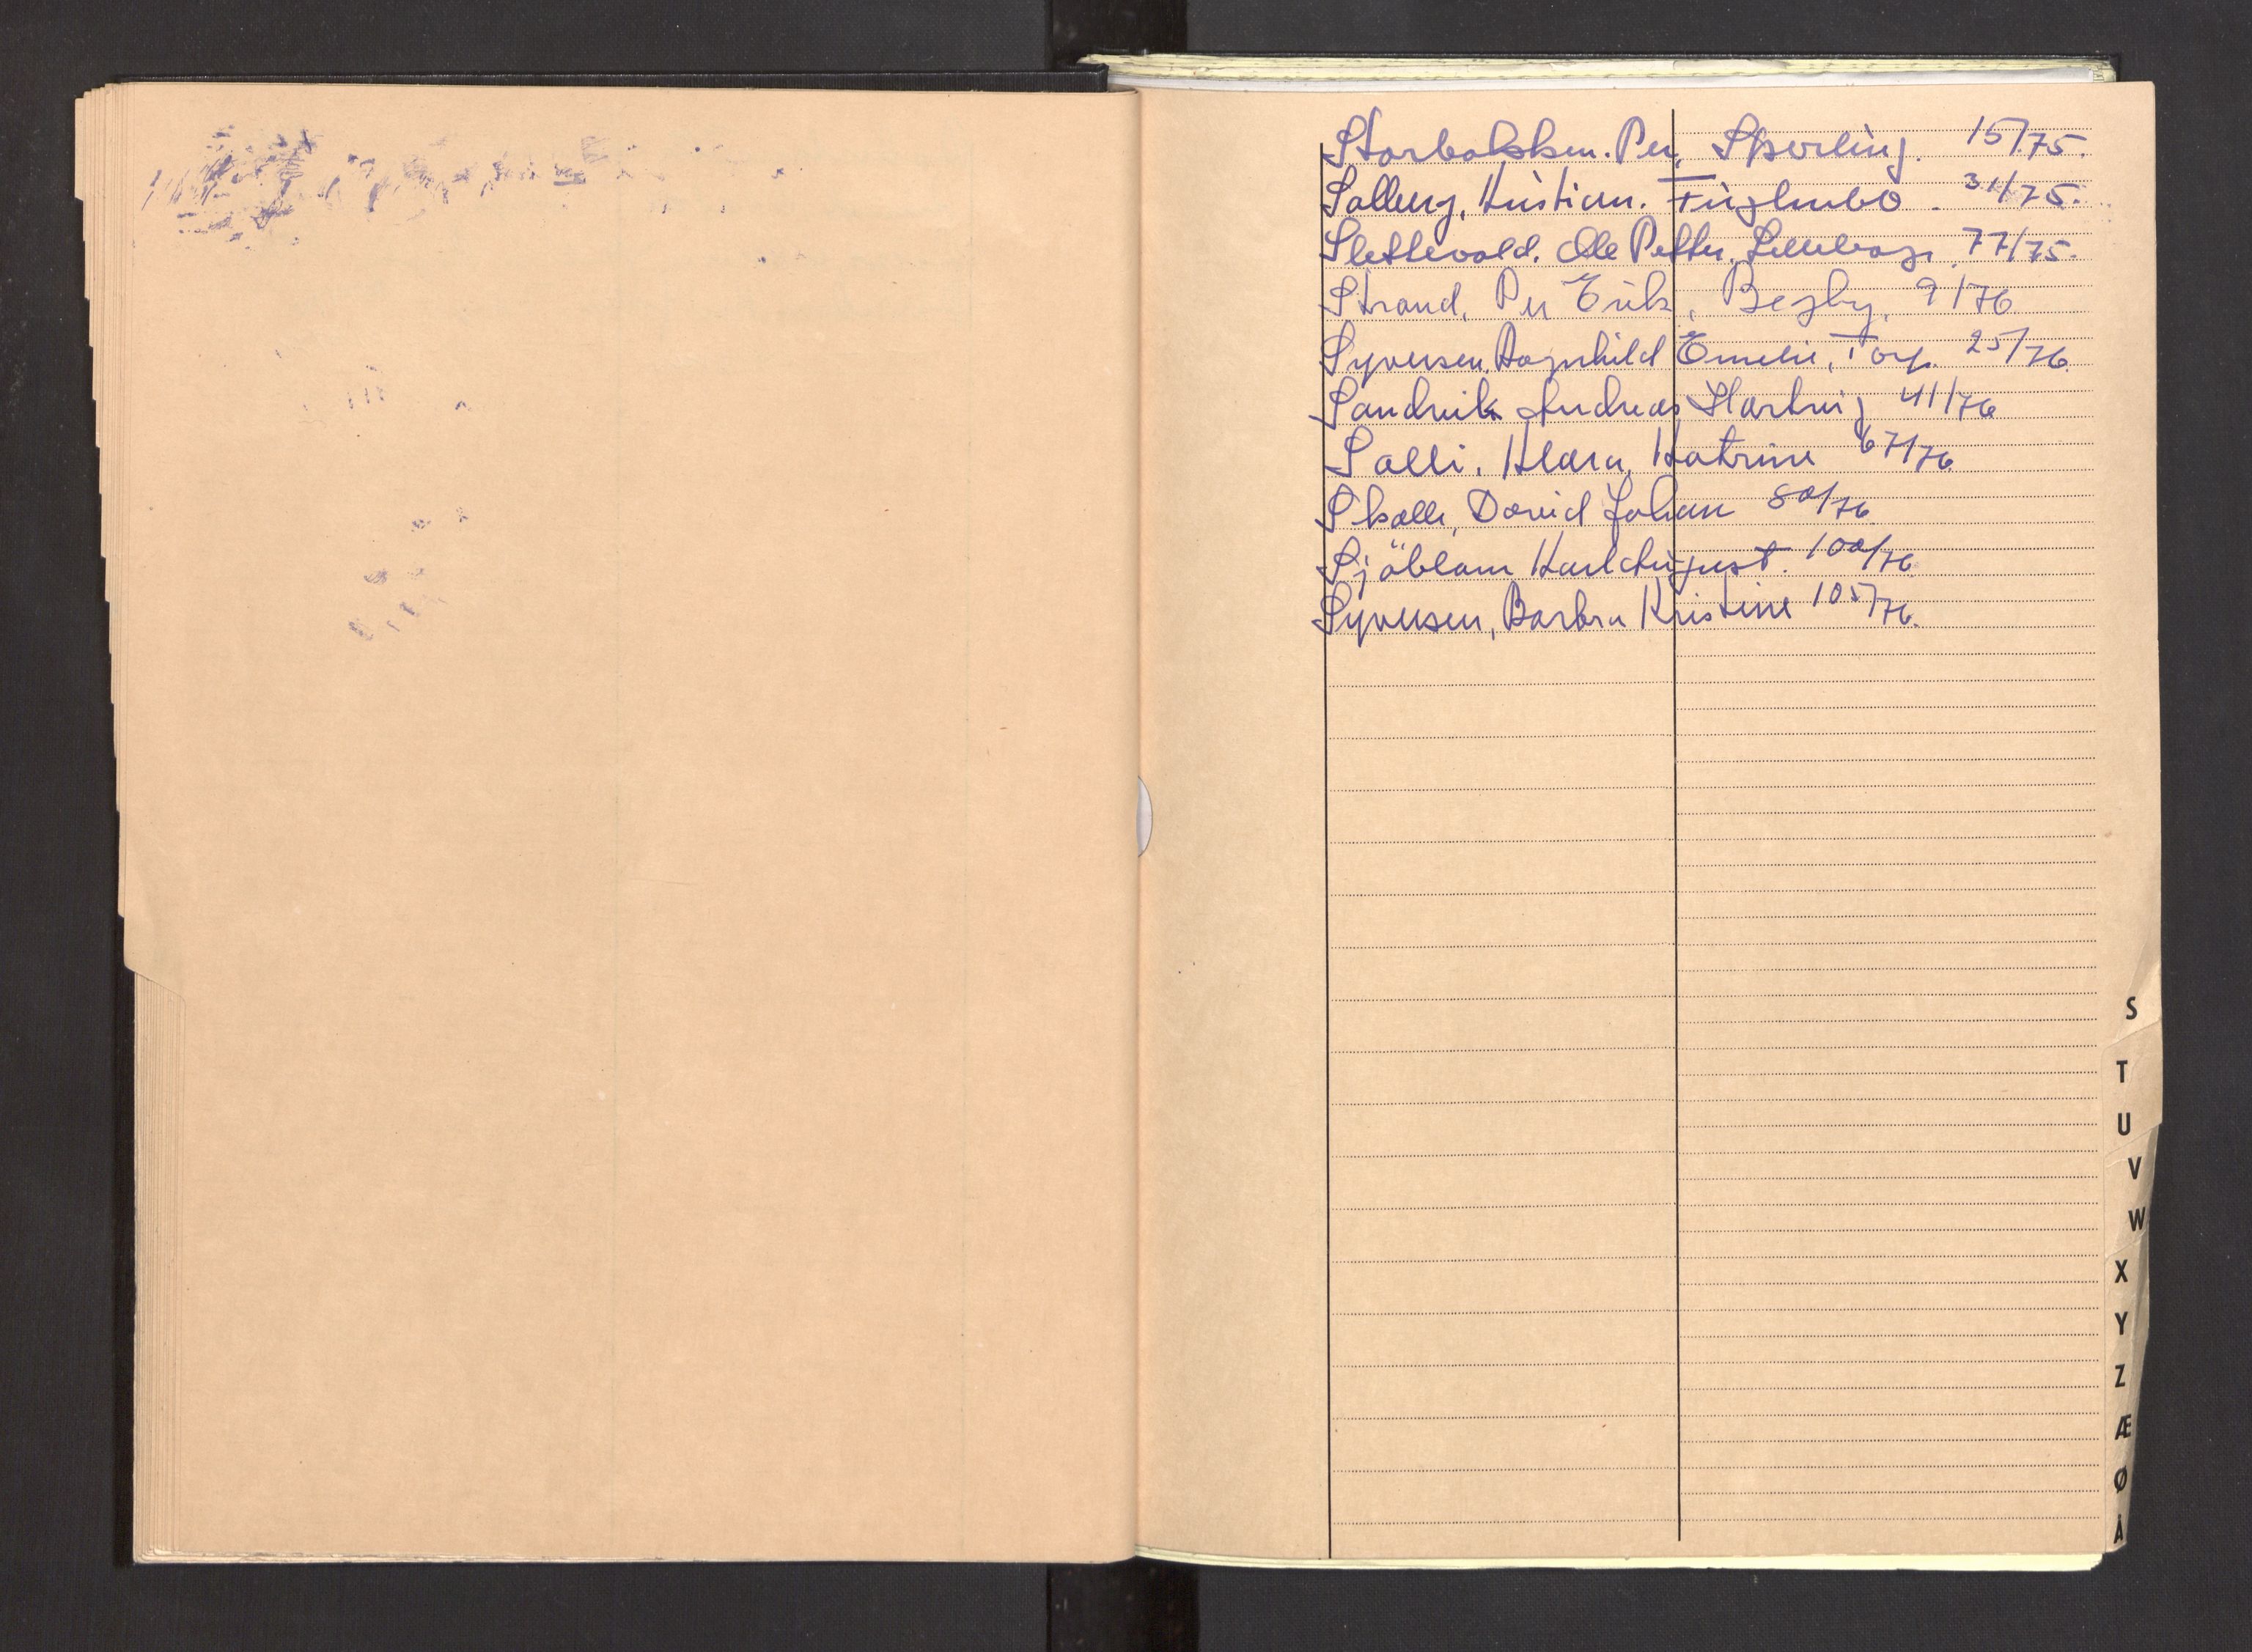 Storbakken. Per, Sperling. 15/75.
Solberg, Kristian. Fuglenbo. 31/75.
Slettevold. Ole Petter. 77/75.
Strand, Per Erik, Begby, 9/76
Syversen, Ragnhild Emelie, Torp. 25/76
Sandvik Andreas Hartvig 41/76
Solli. Klara Katrine 67/76
Skolle, David Johan 80/76
Sjöblom Karl August. 100/76
Syversen, Barbra Kristine 105/76.
S
T
U
V
W
X
Y
Z
Æ
Ø
Å